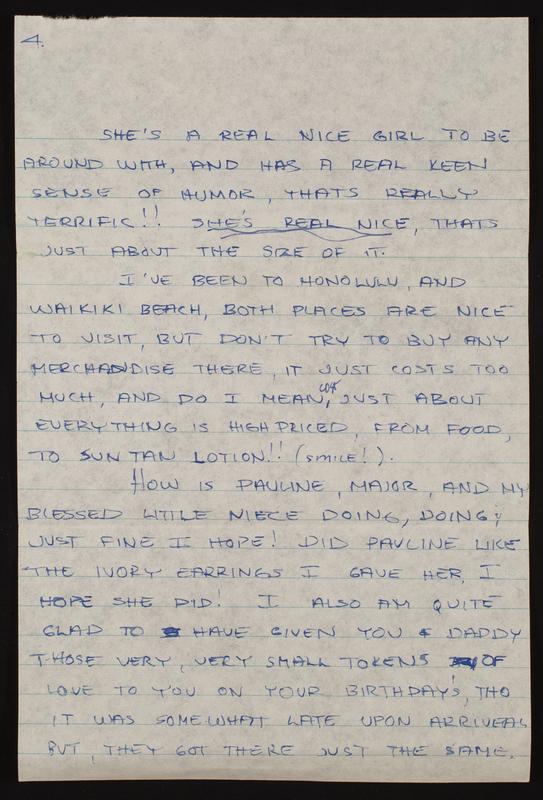 4.
SHE'S A REAL NICE GIRL TO BE
AROUND WITH, AND HAS A REAL KEEN
SENSE OF HUMOR, THATS REALLY
TERRIFIC!! SHE'S REAL NICE, THATS
JUST ABOUT THE SIZE OF IT.
I'VE BEEN TO HONOLULU, AND
WAIKIKI BEACH, BOTH PLACES ARE NICE
TO VISIT, BUT DON'T TRY TO BUY ANY
MERCHANDISE THERE, IT JUST COSTS TOO
MUCH, AND DO I MEAN, COST JUST ABOUT
EVERYTHING IS HIGH PRICED, FROM FOOD,
TO SUN TAN LOTION!! (SMILE!).
HOW IS PAULINE, MAJOR, AND MY
BLESSED LITTLE NIECE DOING, DOING;
JUST FINE I HOPE! DID PAULINE LIKE
THE IVORY EARRINGS I GAVE HER, I
HOPE SHE DID! I ALSO AM QUITE
GLAD TO HAVE GIVEN YOU & DADDY
THOSE VERY, VERY SMALL TOKENS OF
LOVE TO YOU ON YOUR BIRTHDAY'S, THO
IT WAS SOMEWHAT LATE UPON ARRIVEAL
BUT, THEY GOT THERE JUST THE SAME.